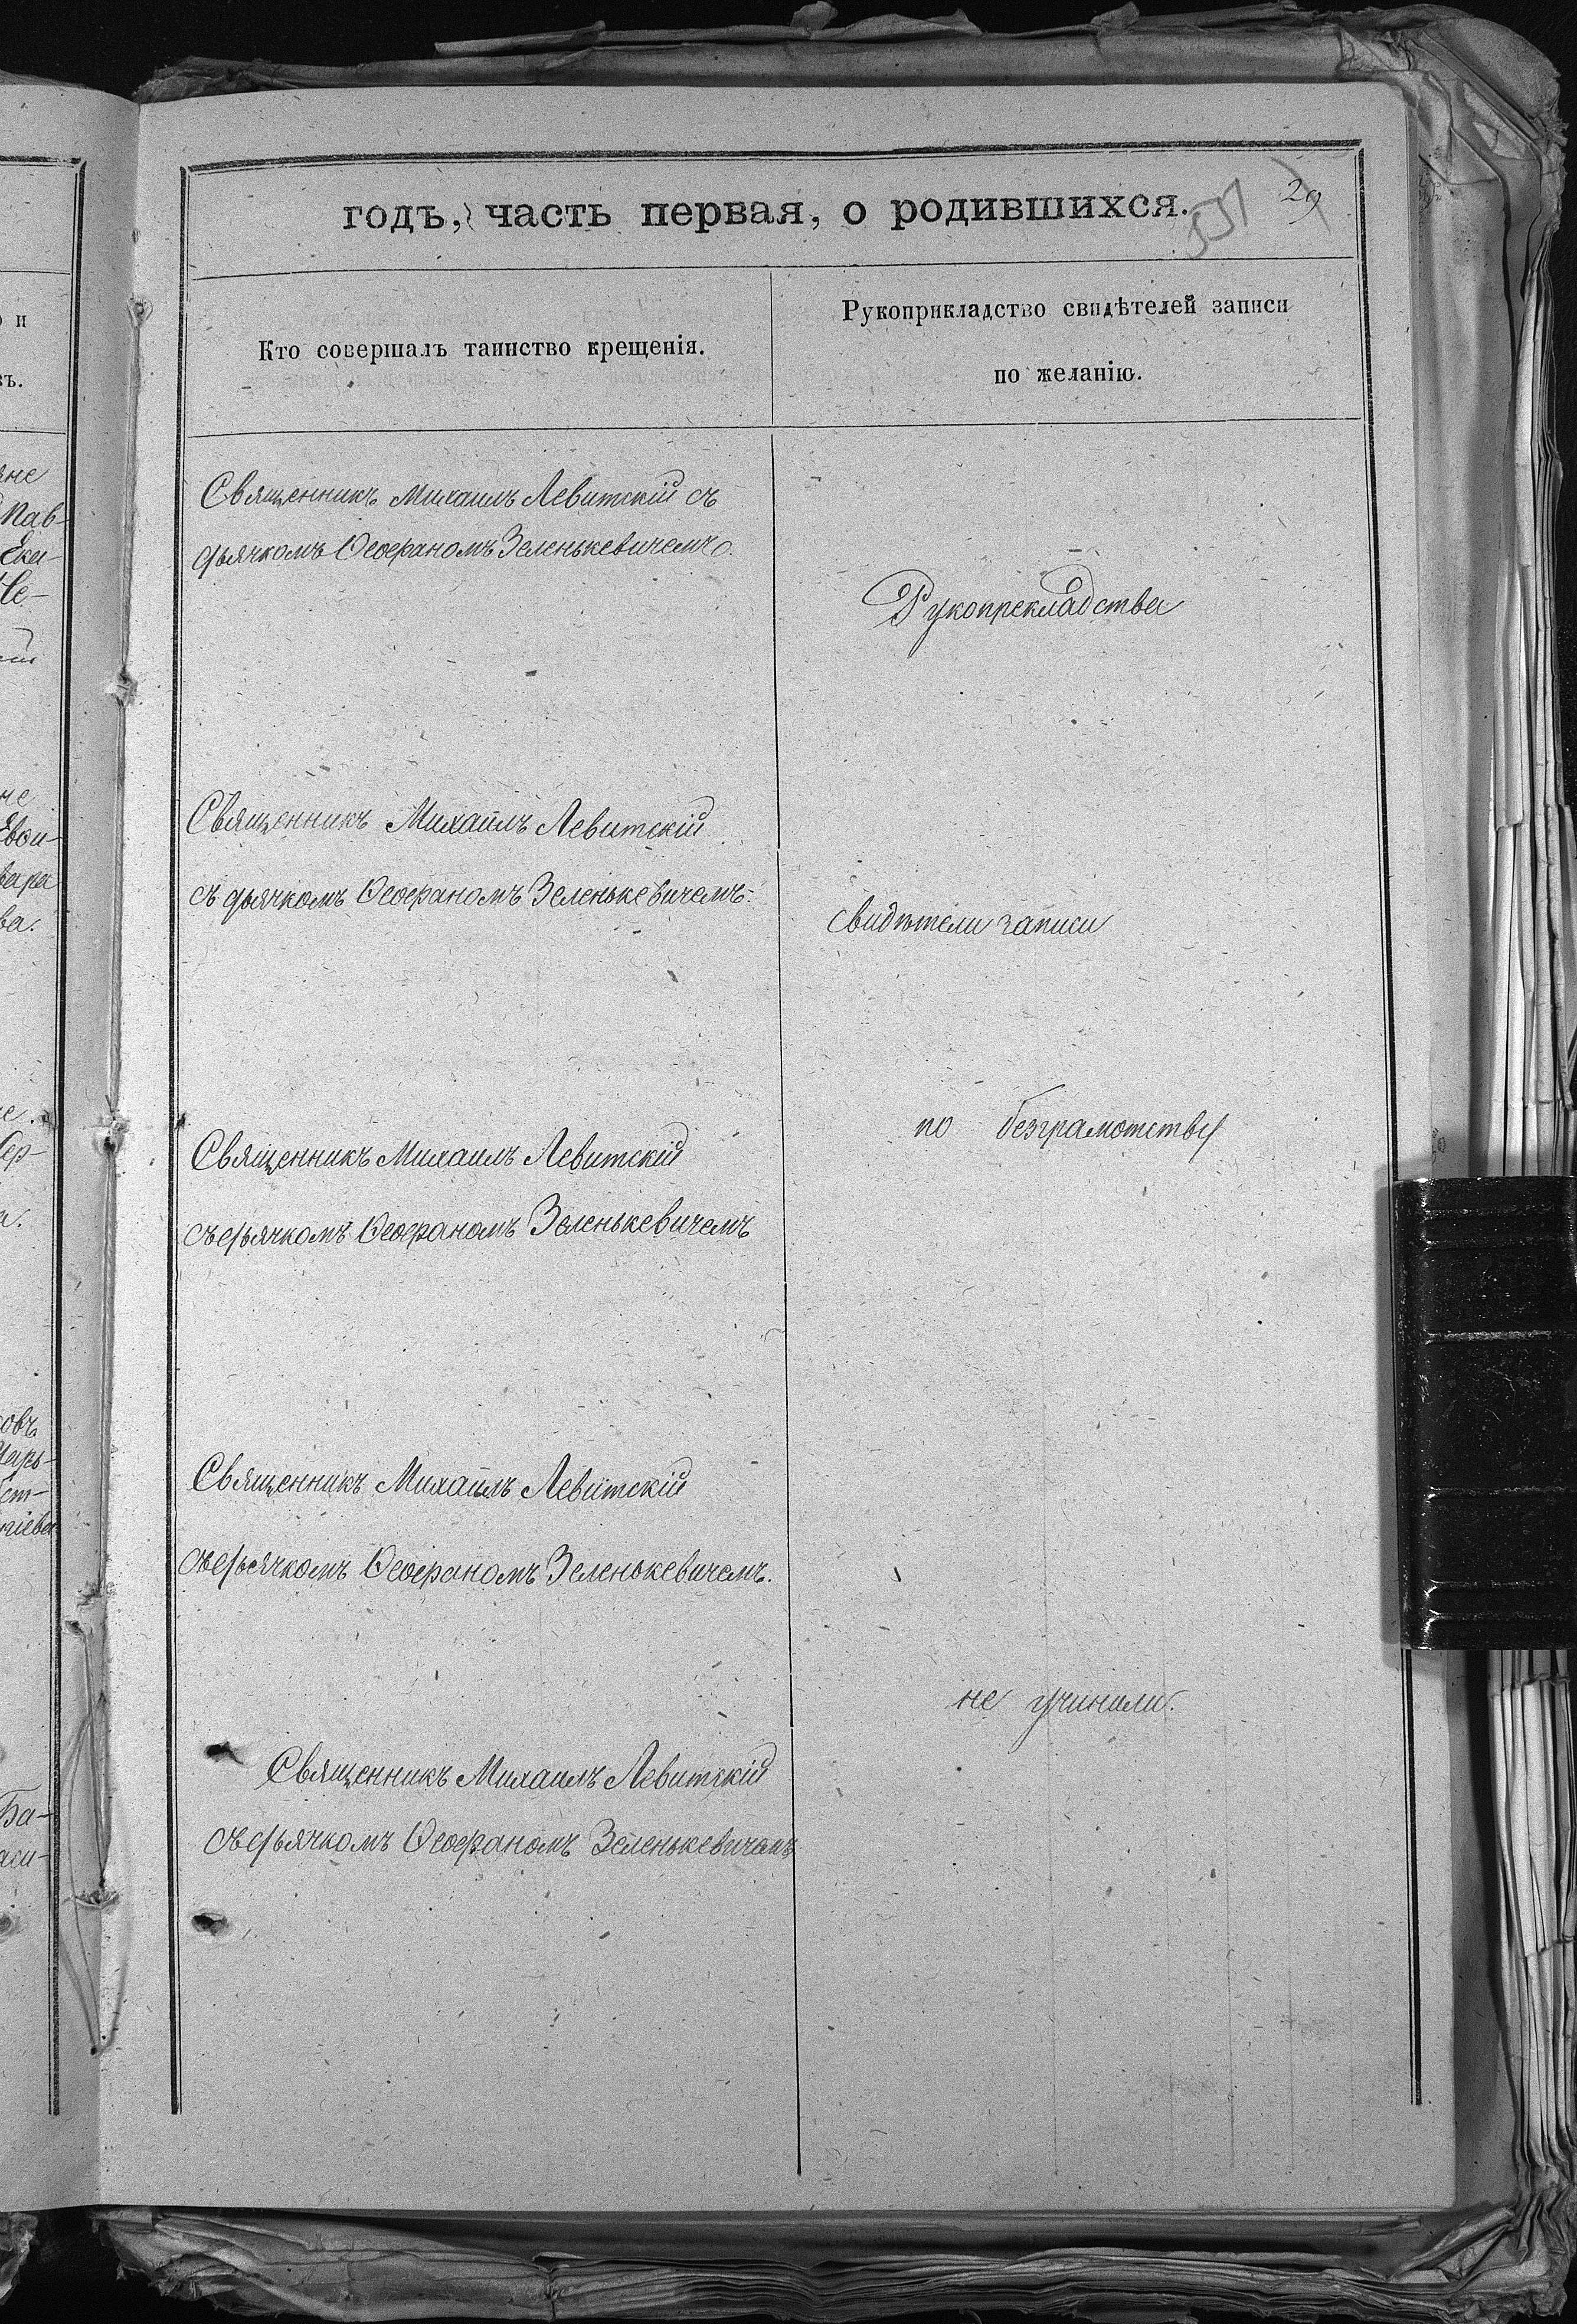 годъ, часть первая, о родившихся.
29
Кто совершалъ таинство крещенія.
Рукоприкладство свидѣтелей записи
по желанію.
Священникъ Михаилъ Левитскій съ
дьячкомъ Ѳеофаномъ Зеленькевичемъ.
Рукоприкладства
Священникъ Михаилъ Левитскій
съ дьячкомъ Ѳеофаномъ Зеленькевичемъ.
свидѣтели записи
по безграмотству
Священникъ Михаилъ Левитскій
съ дьячкомъ Ѳеофаномъ Зеленькевичемъ
Священникъ Михаилъ Левитскій
съ дьячкомъ Ѳеофаномъ Зеленькевичемъ.
не учинили.
Священникъ Михаилъ Левитскій
съ дьячкомъ Ѳеофаномъ Зеленькевичемъ